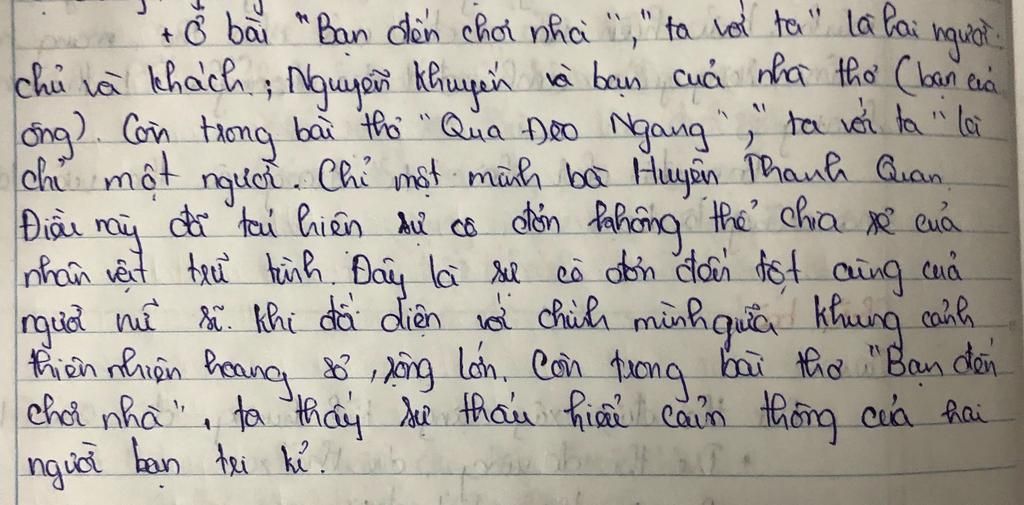 + Ở bài "Bạn đến chơi nhà", "ta với ta" là hai người:
chủ và khách; Nguyễn Khuyến và bạn của nhà thơ (bạn của
ông). Còn trong bài thơ "Qua Đèo Ngang", "ta với ta" lại
chỉ một người. Chỉ một mình bà Huyện Thanh Quan.
Điều này đã thể hiện sự cô đơn không thể chia sẻ của
nhân vật trữ tình. Đây là sự cô đơn đến tột cùng của
người nữ sĩ khi đối diện với chính mình giữa khung cảnh
thiên nhiên hoang sơ, rộng lớn. Còn trong bài thơ "Bạn đến
chơi nhà", ta thấy sự thấu hiểu cảm thông của hai
người bạn tri kỉ.